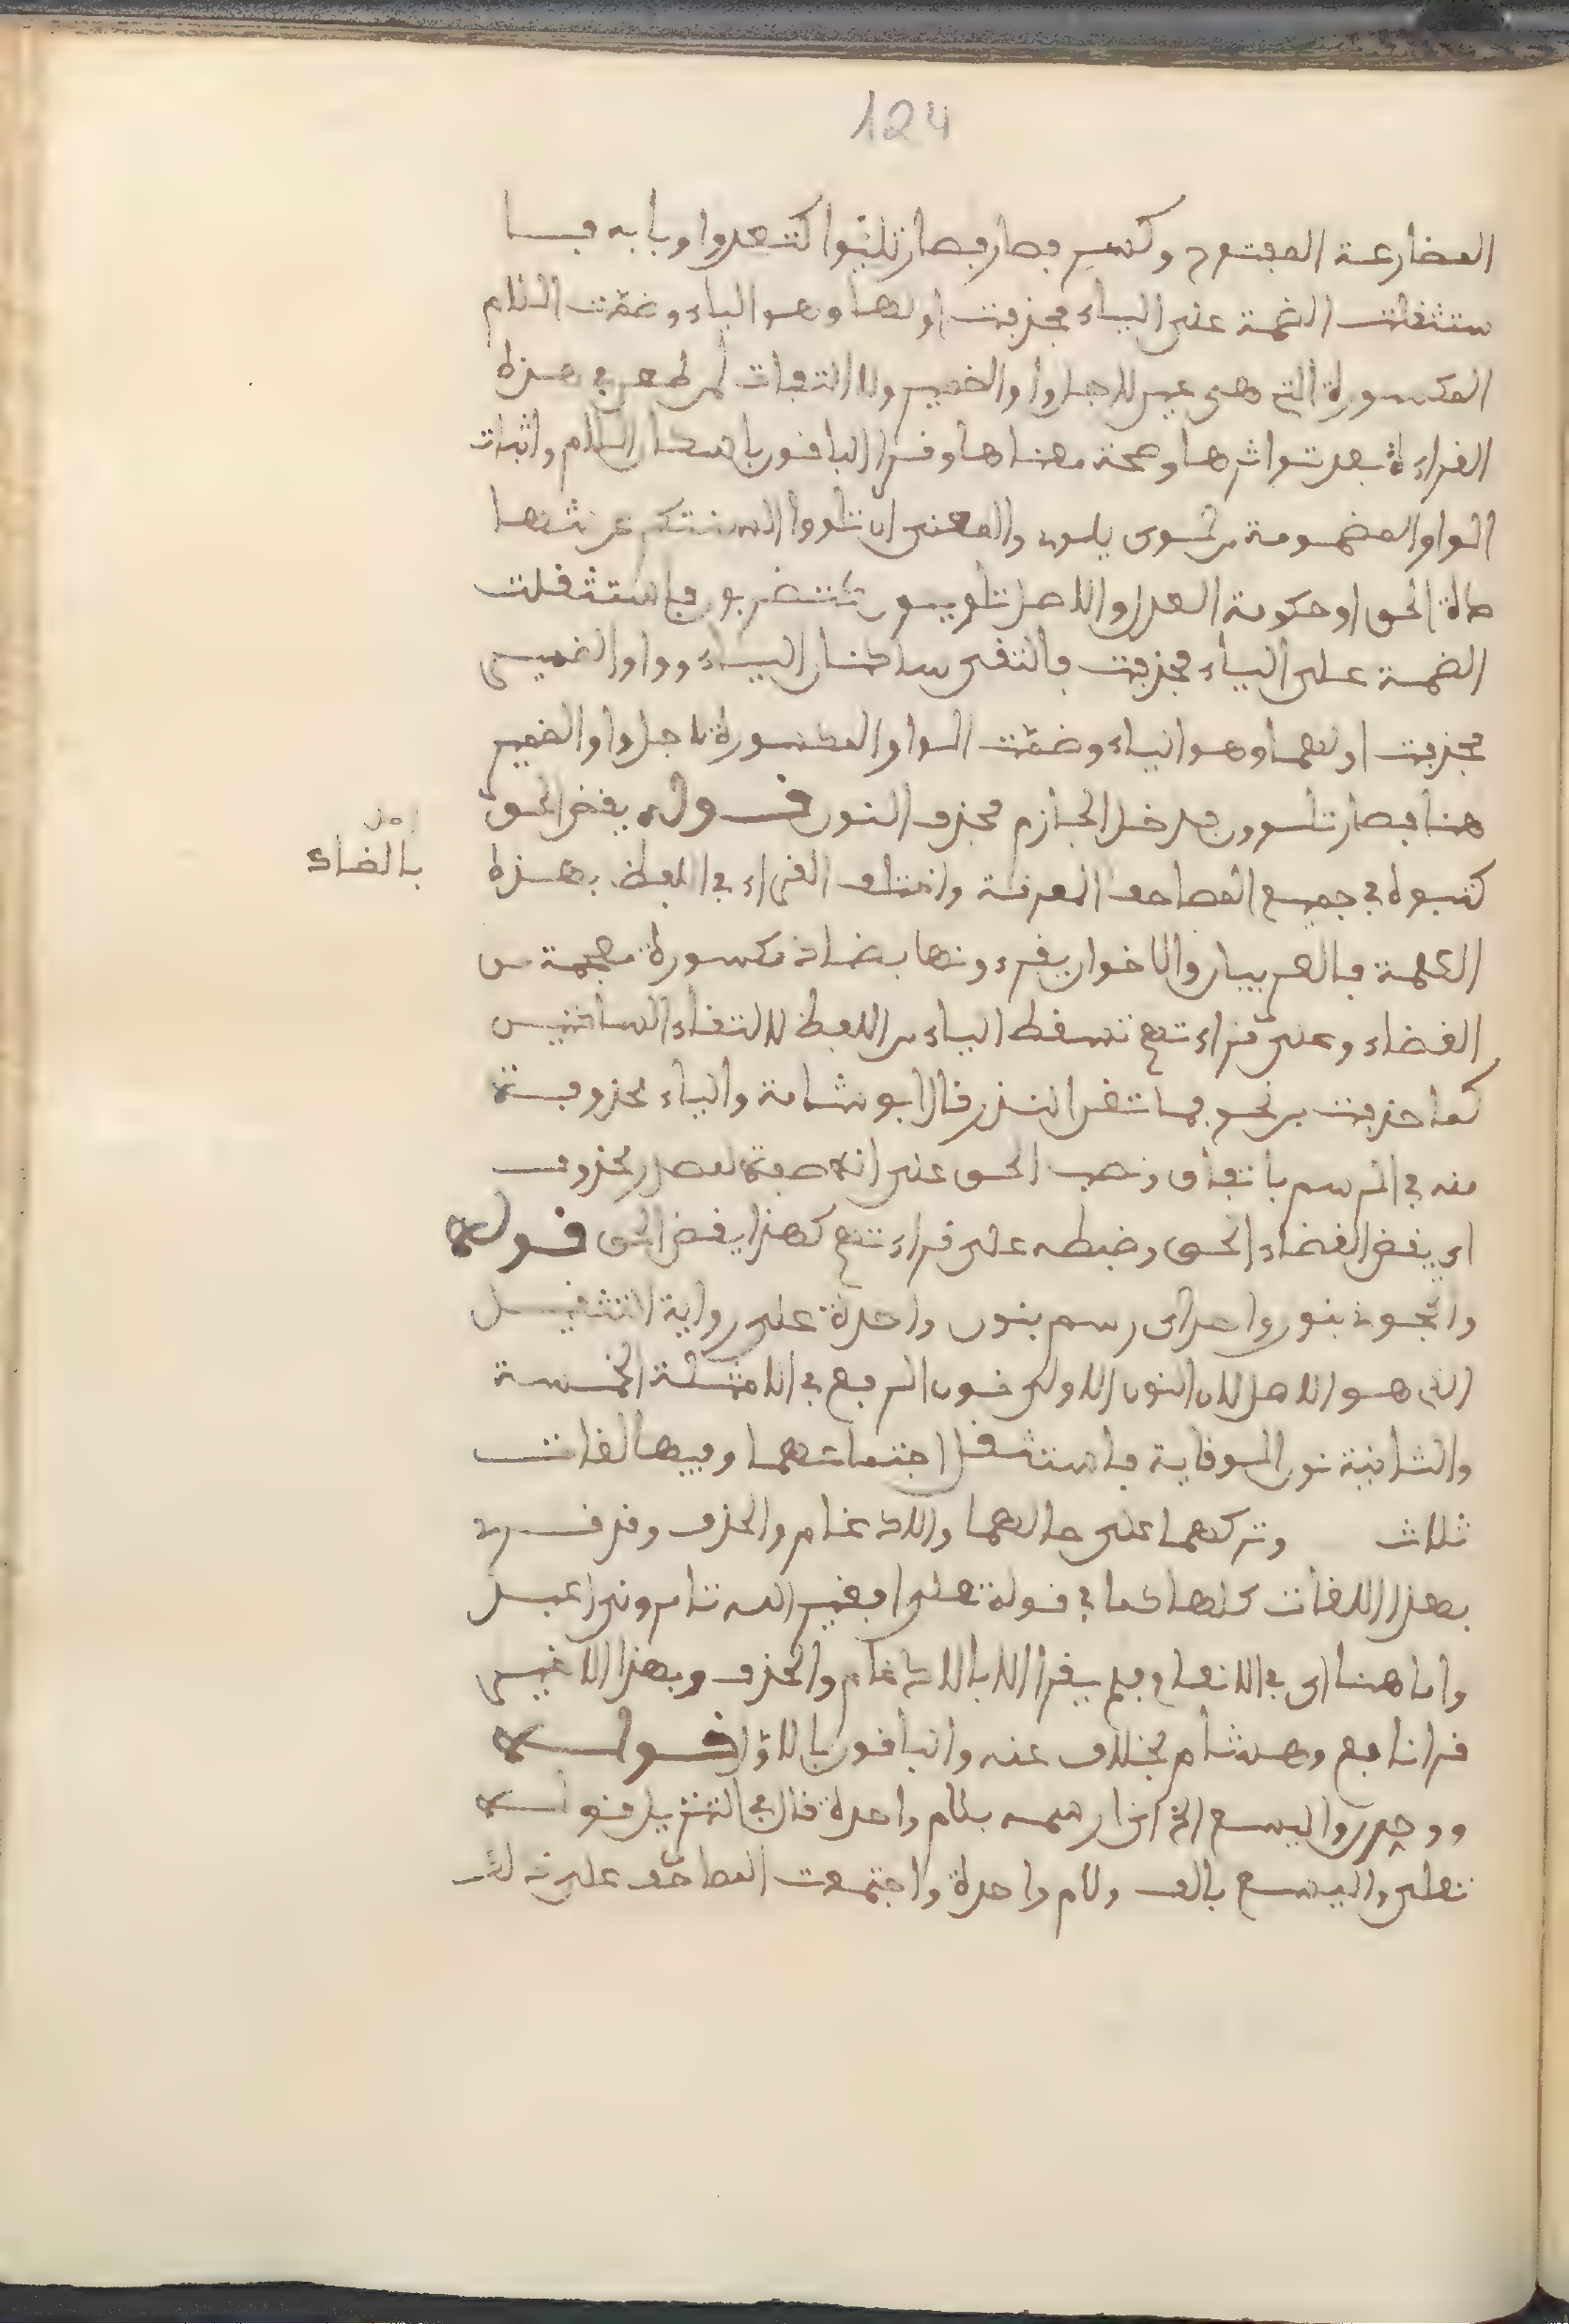 124
المضارعة المفتوح وكسر فصار فصار تليوا كتعدوا وبابه فا
ستثقلت الضمة على الياء فحذفت اولهما وهو الياء وضمت اللام
المكسورة التي هي عين لاجل واو الضمير ولا التفات لمن طعن في هذه
القراءة بعد تواترها وصحة معناها وقرا الباقون باسكان اللام واثبات
الواو المضمومة من لوى يلوى والمعنى ان تلووا السنتكم عن شها
دة الحق او حكومة العدل والاصل تلويون كتضربون فاستثقلت
الضمة على الياء فحذفت فالتقى ساكنان الياء وواو الضمير
فحذفت اولهما وهو الياء وضمت الواو المكسورة لاجل واو الضمير
هنا فصار تلوون فدخل الجازم فحذف النون قوله يقض الحق
بالضاد
كتبوه في جميع المصاحف واختلف القراء في اللفظ بهذه
الكلمة فالعربيان والاخوان يقرءونها بضاد مكسورة معجمة من
القضاء وعلى قراءتهم تسقط الياء من اللفظ لالتقاء الساكنين
كما حذفت من نحو فما تغن النذر قال ابو شامة والياء محذوفة
منه في الرسم باتفاق ونصب الحق على انه صفة لمصدر محذوف
اي يقض القضاء الحق وضبطه على قراءتهم كهذا يقض الحق قوله
واتحجوني بنون واحد اى رسم بنون واحدة على رواية التثقيل
الذي هو الاصل لان النون الاولى نون الرفع في الامثلة الخمسة
والثانية نون الوقاية فاستثقل اجتماعهما وفيها لغات
ثلاث وتركهما على حالهما والادغام والحذف وقد قرئ
بهذا اللغات كلها كما في قوله تعلى افغير الله تامروني اعبد
واما هنا اى في الانعام فلم يقرا الا بالادغام والحذف وبهذا الاخير
قرا نافع وهشام بخلاف عنه والباقون بالاول قوله
ووجدوا اليسع الخ اى ارسمه بلام واحدة قال في التنزيل قوله
تعلى واليسع بالف ولام واحدة واجتمعت المصاحف على ذلك